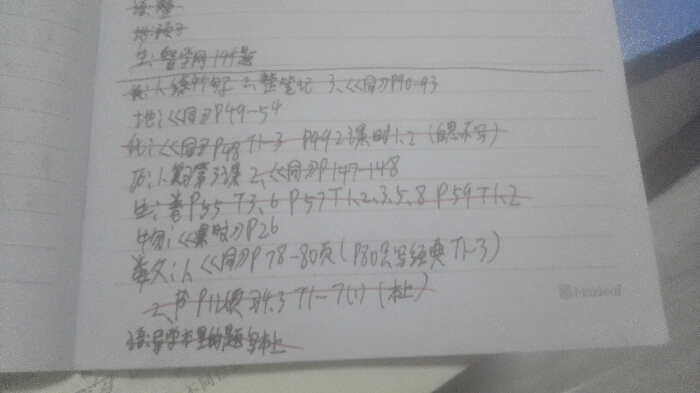 语:整
地:预习
生:智学网144题
英:1、练听解 2、整笔记 3、《同》P90-93
地:《同》P49-54
化:《同》P48 T1-3 P49 2课时1.2(自思不写)
历:1、复习第3课 2、《同》P147-148
生:卷P55 T3、6 P57 T1、2、3、5、8 P59 T1、2
物:《课时》P26
数:1、《同》P78-80页(P80只写经典T1-3)
2、P112 习4.3 T1-7(1)(本上)
语:导学本里的题写本上
Maxleaf